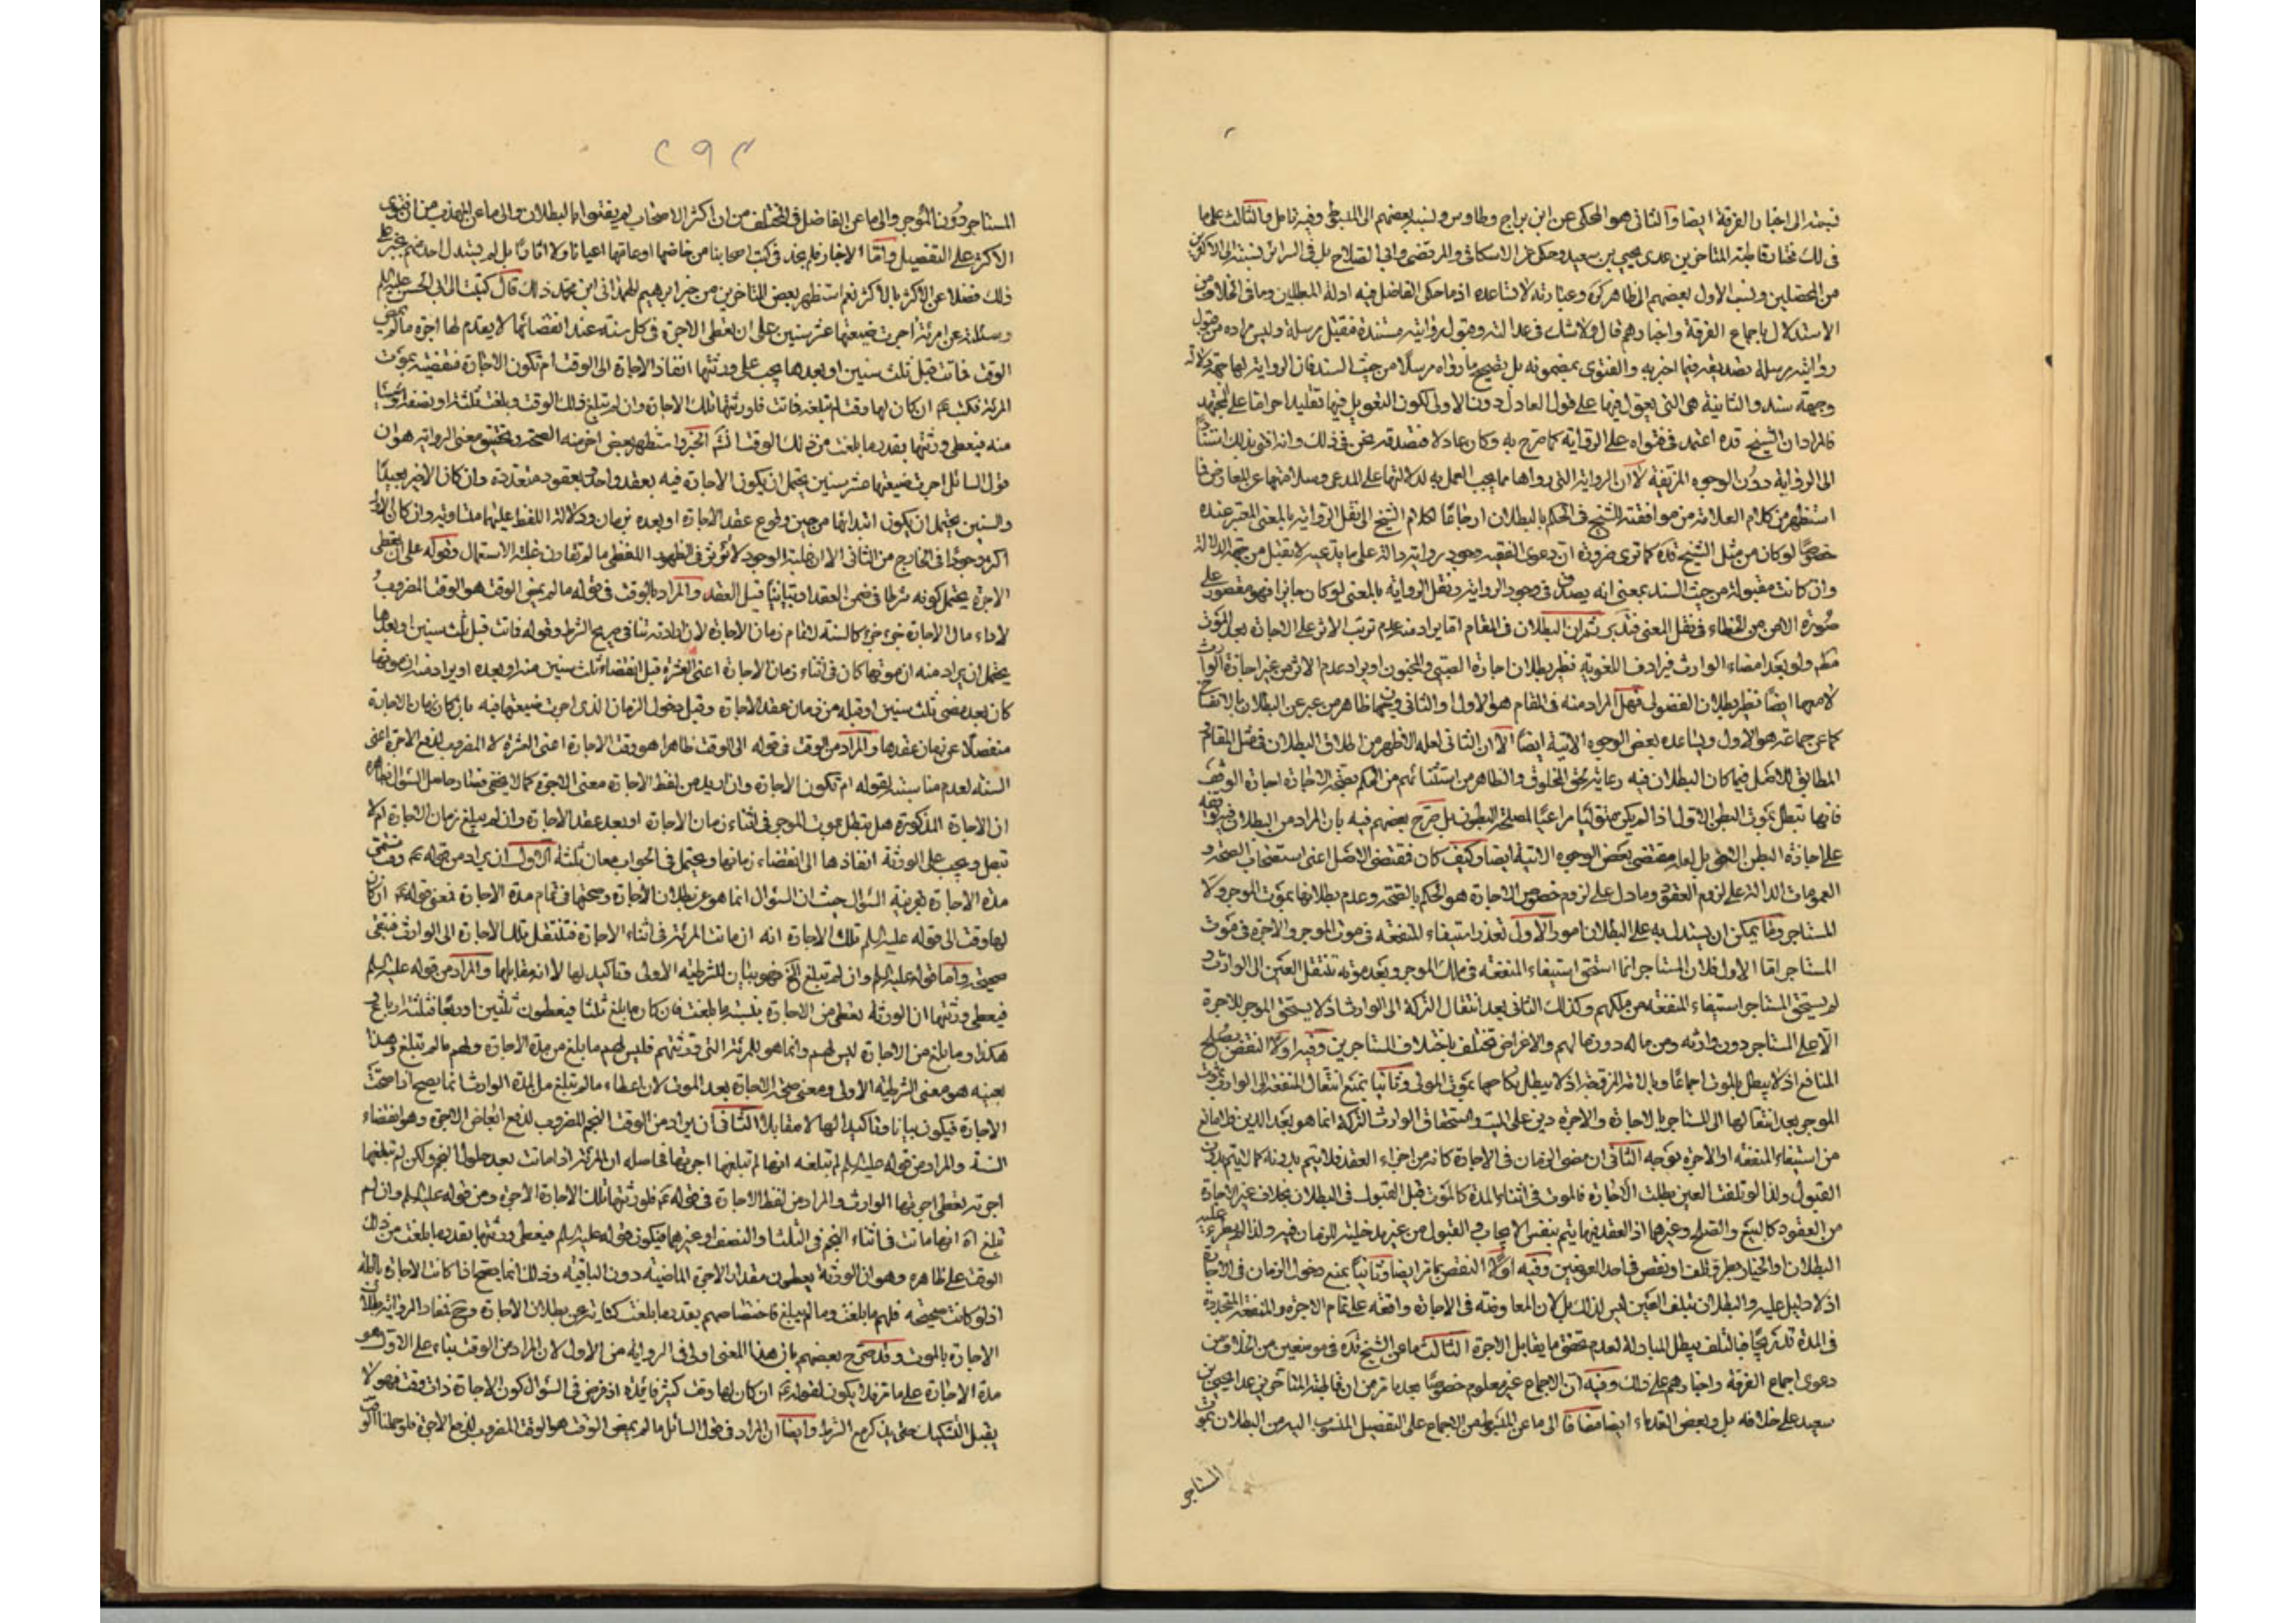 فيمته الى اخبار الفرقة ايضا والثانى هو المحكى عن ابن براج وطاوس ونسبه بعضهم الى المبسوط وفيه تامل والثالث على ما
فى لك مختار قاطبة المتاخرين عدى يحيى بن سعيد وحكى عن الاسكافى والمرتضى وابى الصلاح بل فى السرائر نسبته الى الاكثرين
من المحصلين ونسب الاول بعضهم الى ظاهر كره وعبارته لا تساعده اذ ما حكى الفاضل فيه ادلة المبطلين وما فى الخلاف من
الاستدلال باجماع الفرقة واخبارهم قال ولا شك فى عدالته ومقبول روايته مستندة فتقبل مرسلة وليس مراده من قبول
روايته مرسلة تصديقه فيما اخبر به والفتوى بمضمونه بل تصحيح ما رواه مرسلا من حيث السند فان الرواية لها جهة دلالة
وجهة سند والثانية هى التى يعول فيها على قول العادل دون الاولى لكون التعويل فيها تقليدا حراما على المجتهد
فالمراد ان الشيخ قده اعتمد فى فتواه على الرواية كما صرح به وكان عادلا فنصدقه نحن فى ذلك وانه افتى بذلك استنادا
الى الرواية دون الوجوه المزيفة لا ان الرواية التى رواها مما يجب العمل به لدلالتها على المدعى وسلامتها عن المعارض فما
استظهر من كلام العلامة من موافقته للشيخ فى الحكم بالبطلان ارجاعا لكلام الشيخ الى نقل الرواية بالمعنى المعتبر عنده
خصوصا لو كان من مثل الشيخ قده كما ترى ضرورة ان دعوى الفقيه وجود رواية دالة على ما يدعيه لا تقبل من جهة الدلالة
وان كانت مقبولة من حيث السند بمعنى انه يصدق فى وجود الرواية ونقل الرواية بالمعنى لو كان جائزا فهو مقصور على
صورة الامن من الخطاء فى نقل المعنى فتدبر ثم ان البطلان فى المقام اما يراد منه عدم ترتب الاثر على الاجارة بعد الموت
مطم ولو بعد امضاء الوارث فيرادف اللغوية نظير بطلان اجارة الصبى والمجنون او يراد عدم الاثر من غير اجازة الوارث
لا معها ايضا نظير بطلان الفضولى فهل المراد منه فى المقام هو الاول او الثانى وجهان ظاهر من عبر عن البطلان بالانفساخ
كما عن جماعة هو الاول ويساعده بعض الوجوه الاتية ايضا الا ان الثانى لعله الاظهر من اطلاق البطلان فى مثل المقام
المطابق للاصل فيما كان البطلان فيه رعاية لحق المخلوق والظاهر من استثنائهم من الحكم بصحة الاجارة اجارة الوقف
فانها تبطل بموت البطن الاول اذا لم يكن متوليا مراعيا لمصلحة البطون بل صرح بعضهم فيه بان المراد من البطلان فيه توقفه
على اجازة البطن الثانى بل لعله مقتضى بعض الوجوه الاتية ايضا وكيف كان فمقتضى الاصل اعنى استصحاب الصحة و
العمومات الدالة على لزوم العقود وما دل على لزوم خصوص الاجارة هو الحكم بالصحة وعدم بطلانها بموت الموجر ولا
المستاجر وما يمكن ان يستدل به على البطلان امور الاول تعذر استيفاء المنفعة فى موت الموجر والاجرة فى موت
المستاجر اما الاول فلان المستاجر انما استحق استيفاء المنفعة فى ملك الموجر وبعد موته تنتقل العين الى الوارث و
لم يستحق المستاجر استيفاء المنفعة من ملكهم وكذلك الثانى بعد انتقال التركة الى الوارث اذ لا يستحق الموجر للاجرة
الا على المستاجر دون وارثه ومن ماله دون مالهم والاغراض تختلف باختلاف المستاجرين وفيه اولا النقض بصلح
المنافع اذ لا يبطل بالموت اجماعا وبالامة المزوقة اذ لا يبطل نكاحها بموت المولى وثانيا بمنع انتقال المنفعة الى الوارث بموت
الموجر بعد انتقالها الى المستاجر بالاجارة والاجرة دين على الميت واستحقاق الوارث التركة انما هو بعد الدين فلا مانع
من استيفاء المنفعة او الاجرة بوجه الثانى ان مضى الزمان فى الاجارة كانه من اجزاء العقد فلا يتم بدونه كما لا يتم بدون
القبول ولذا لو تلفت العين بطلت الاجارة فالموت فى اثناء المدة كالموت قبل القبول فى البطلان بخلاف غير الاجارة
من العقود كالبيع والصلح وغيرهما اذ العقد فيها يتم بنفس الايجاب والقبول من غير مدخلية الزمان فيه ولذا لا يطرء عليه
البطلان والخيار بطرو تلف او نقص فى احد العوضين وفيه اولا النقض بما مر ايضا وثانيا بمنع دخول الزمان فى الاجارة
اذ لا دليل عليه والبطلان بتلف العين ليس لذلك بل لان المعاوضة فى الاجارة واقعة على تمام الاجرة والمنفعة المتجددة
فى المدة تدريجا فبالتلف يبطل المبادلة لعدم تحقق ما يقابل الاجرة الثالث ما عن الشيخ قده فى موضعين من الخلاف من
دعوى اجماع الفرقة واخبارهم على ذلك وفيه ان الاجماع غير معلوم خصوصا بعد ما مر من ان قاطبة المتاخرين عدا يحيى بن
سعيد على خلافه بل وبعض القدماء ايضا مضافا الى ما عن المبسوط من الاجماع على التفصيل المنسوب اليه من البطلان بموت
المستاجر
٢٩٢
المستاجر دون الموجر والى ما عن الفاضل فى المختلف من ان اكثر الاصحاب لم يفتوا بالبطلان والى ما عن المهذب من ان فتوى
الاكثر على التفصيل واما الاخبار فلم يجد فى كتب اصحابنا من خاضها او عامها اعيانا ولا اثارا بل لم يستدل احد منهم بخبر على
ذلك فضلا عن الاكثر بالاكثر نعم استظهر بعض المتاخرين من خبر ابرهيم الهمدانى ابن محمد ذلك قال كتبت الى ابى الحسن عليه السلم
وسئلته عن امرئة اجرت ضيعتها عشر سنين على ان تعطى الاجرة فى كل سنة عند انقضائها لا يقدم لها اجرة ما لم يمض
الوقت فماتت قبل ثلث سنين او بعدها يجب على ورثتها انفاذ الاجارة الى الوقت ام تكون الاجارة منقضية بموت
المرئة فكتب ع ان كان لها وقت لم تبلغه فماتت فلورثتها تلك الاجارة وان لم تبلغ ذلك الوقت وبلغت ثلثه او نصفه او شيئا
منه فيعطى ورثتها بقدر ما بلغت من ذلك الوقت انشم الخبر واستظهر بعض اخر منه الصحة وتحقيق معنى الرواية هو ان
قول السائل اجرت ضيعتها عشر سنين يحتمل ان يكون الاجارة فيه بعقد واحد وبعقود متعددة وان كان الاخير بعيدا
والسنين يحتمل ان يكون ابتدائها من حين وقوع عقد الاجارة او بعده بزمان ودلالة اللفظ عليهما متساوية وان كان الاول
اكثر وجودا فى الخارج من الثانى الا ان غلبة الوجود لا تؤثر فى الظهور اللفظى ما لم تقارن غلبة الاستعمال وقوله على ان تعطى
الاجرة يحتمل كونه شرطا فى ضمن العقد او تبانيا قبل العقد والمراد بالوقت فى قوله ما لم يمض الوقت هو الوقت المضروب
لاداء مال الاجارة جزء جزء كالسنة لاتمام زمان الاجارة لان ارادته تنافى صريح الشرط وقوله فماتت قبل ثلث سنين او بعدها
يحتمل ان يراد منه ان موتها كان فى اثناء زمان الاجارة اعنى العشرة قبل انقضاء ثلث سنين منه او بعده او يراد منه ان موتها
كان بعد مضى ثلث سنين او قبله من زمان عقد الاجارة وقبل دخول الزمان الذى اجرت ضيعتها فيه بان كان زمان الاجارة
منفصلا عن زمان عقدها والمراد من الوقت فى قوله الى الوقت ظاهرا هو وقت الاجارة اعنى العشرة لا المضروب لدفع الاجرة اعنى
السنة لعدم مناسبته لقوله ام تكون الاجارة وان اريد من لفظ الاجارة معنى الاجرة كما لا يخفى فصار حاصل السؤال
ان الاجارة المذكورة هل تبطل بموت الموجر فى اثناء زمان الاجارة او بعد عقد الاجارة وان لم يبلغ زمان الاجارة ام لا
تبطل ويجب على الورثة انفاذها الى انقضاء زمانها ويحتمل فى الجواب معان ثلثة الاول ان يراد من قوله ع وقت منتهى
مدة الاجارة بقرينة السؤال حيث ان السؤال انما هو عن بطلان الاجارة وصحتها فى تمام مدة الاجارة فمعنى قوله ع ان كان
لها وقت الى قوله عليه السلم تلك الاجارة انه ان ماتت المرئة فى اثناء الاجارة فتنتقل تلك الاجارة الى الوارث فتبقى
صحيحة واما قوله عليه السلم وان لم تبلغ الخ فهو بيان للشرطية الاولى وتاكيد لها لا انه مقابلها والمراد من قوله عليه السلم
فيعطى ورثتها ان الورثة تعطى من الاجارة بنسبة ما بلغت فان كان ما بلغ ثلثا فيعطون ثلثين او ربعا فثلثة ارباع و
هكذا وما بلغ من الاجارة ليس لهم وانما هو للمرئة التى ورثتهم فليس لهم ما بلغ من مدة الاجارة ولهم ما لم تبلغ وهذا
بعينه هو معنى الشرطية الاولى ومعنى صحة الاجارة بعد الموت لان اعطاء ما لم تبلغ من المدة الوارث انما يصح اذا صحت
الاجارة فيكون بيانا وتاكيدا لها لا مقابلا الثانى ان يراد من الوقت النجم المضروب لدفع ابعاض الاجرة وهو انقضاء
السنة والمراد من قوله عليه السلم لم تبلغه انها لم تبلغها اجرتها فحاصله ان المرئة اذا ماتت بعد حلول النجم ولكن لم تبلغها
اجرته يعطى اجرتها الوارث والمراد من لفظ الاجارة فى قوله ع فلورثتها تلك الاجارة الاجرة ومن قوله عليه السلم وان لم
تبلغ اه انها ماتت فى اثناء النجم فى الثلث او النصف او غيرهما فيكون قوله عليه السلم فيعطى ورثتها بقدر ما بلغت من ذلك
الوقت على ظاهره وهو ان الورثة يعطون مقدار الاجرة الماضية دون الباقية وذلك انما يصح اذا كانت الاجارة باطلة
اذ لو كانت صحيحة فلهم ما بلغت وما لم يبلغ فاختصاصهم بقدر ما بلغت كناية عن بطلان الاجارة وح فمفاد الرواية بطلان
الاجارة بالموت وقد صرح بعضهم بان هذا المعنى اولى فى الرواية من الاول لان المراد من الوقت بناء على الاول هو
مدة الاجارة على ما مر فلا يكون لقوله ع ان كان لها وقت كثير فائدة اذ فرض فى السؤال كون الاجارة ذات وقت فهو لا
يقبل التشكيك حتى يذكر مع الشرط وايضا ان المراد فى قول السائل ما لم يمض الوقت هو الوقت المضروب لدفع الاجرة فلو حملنا الوقت